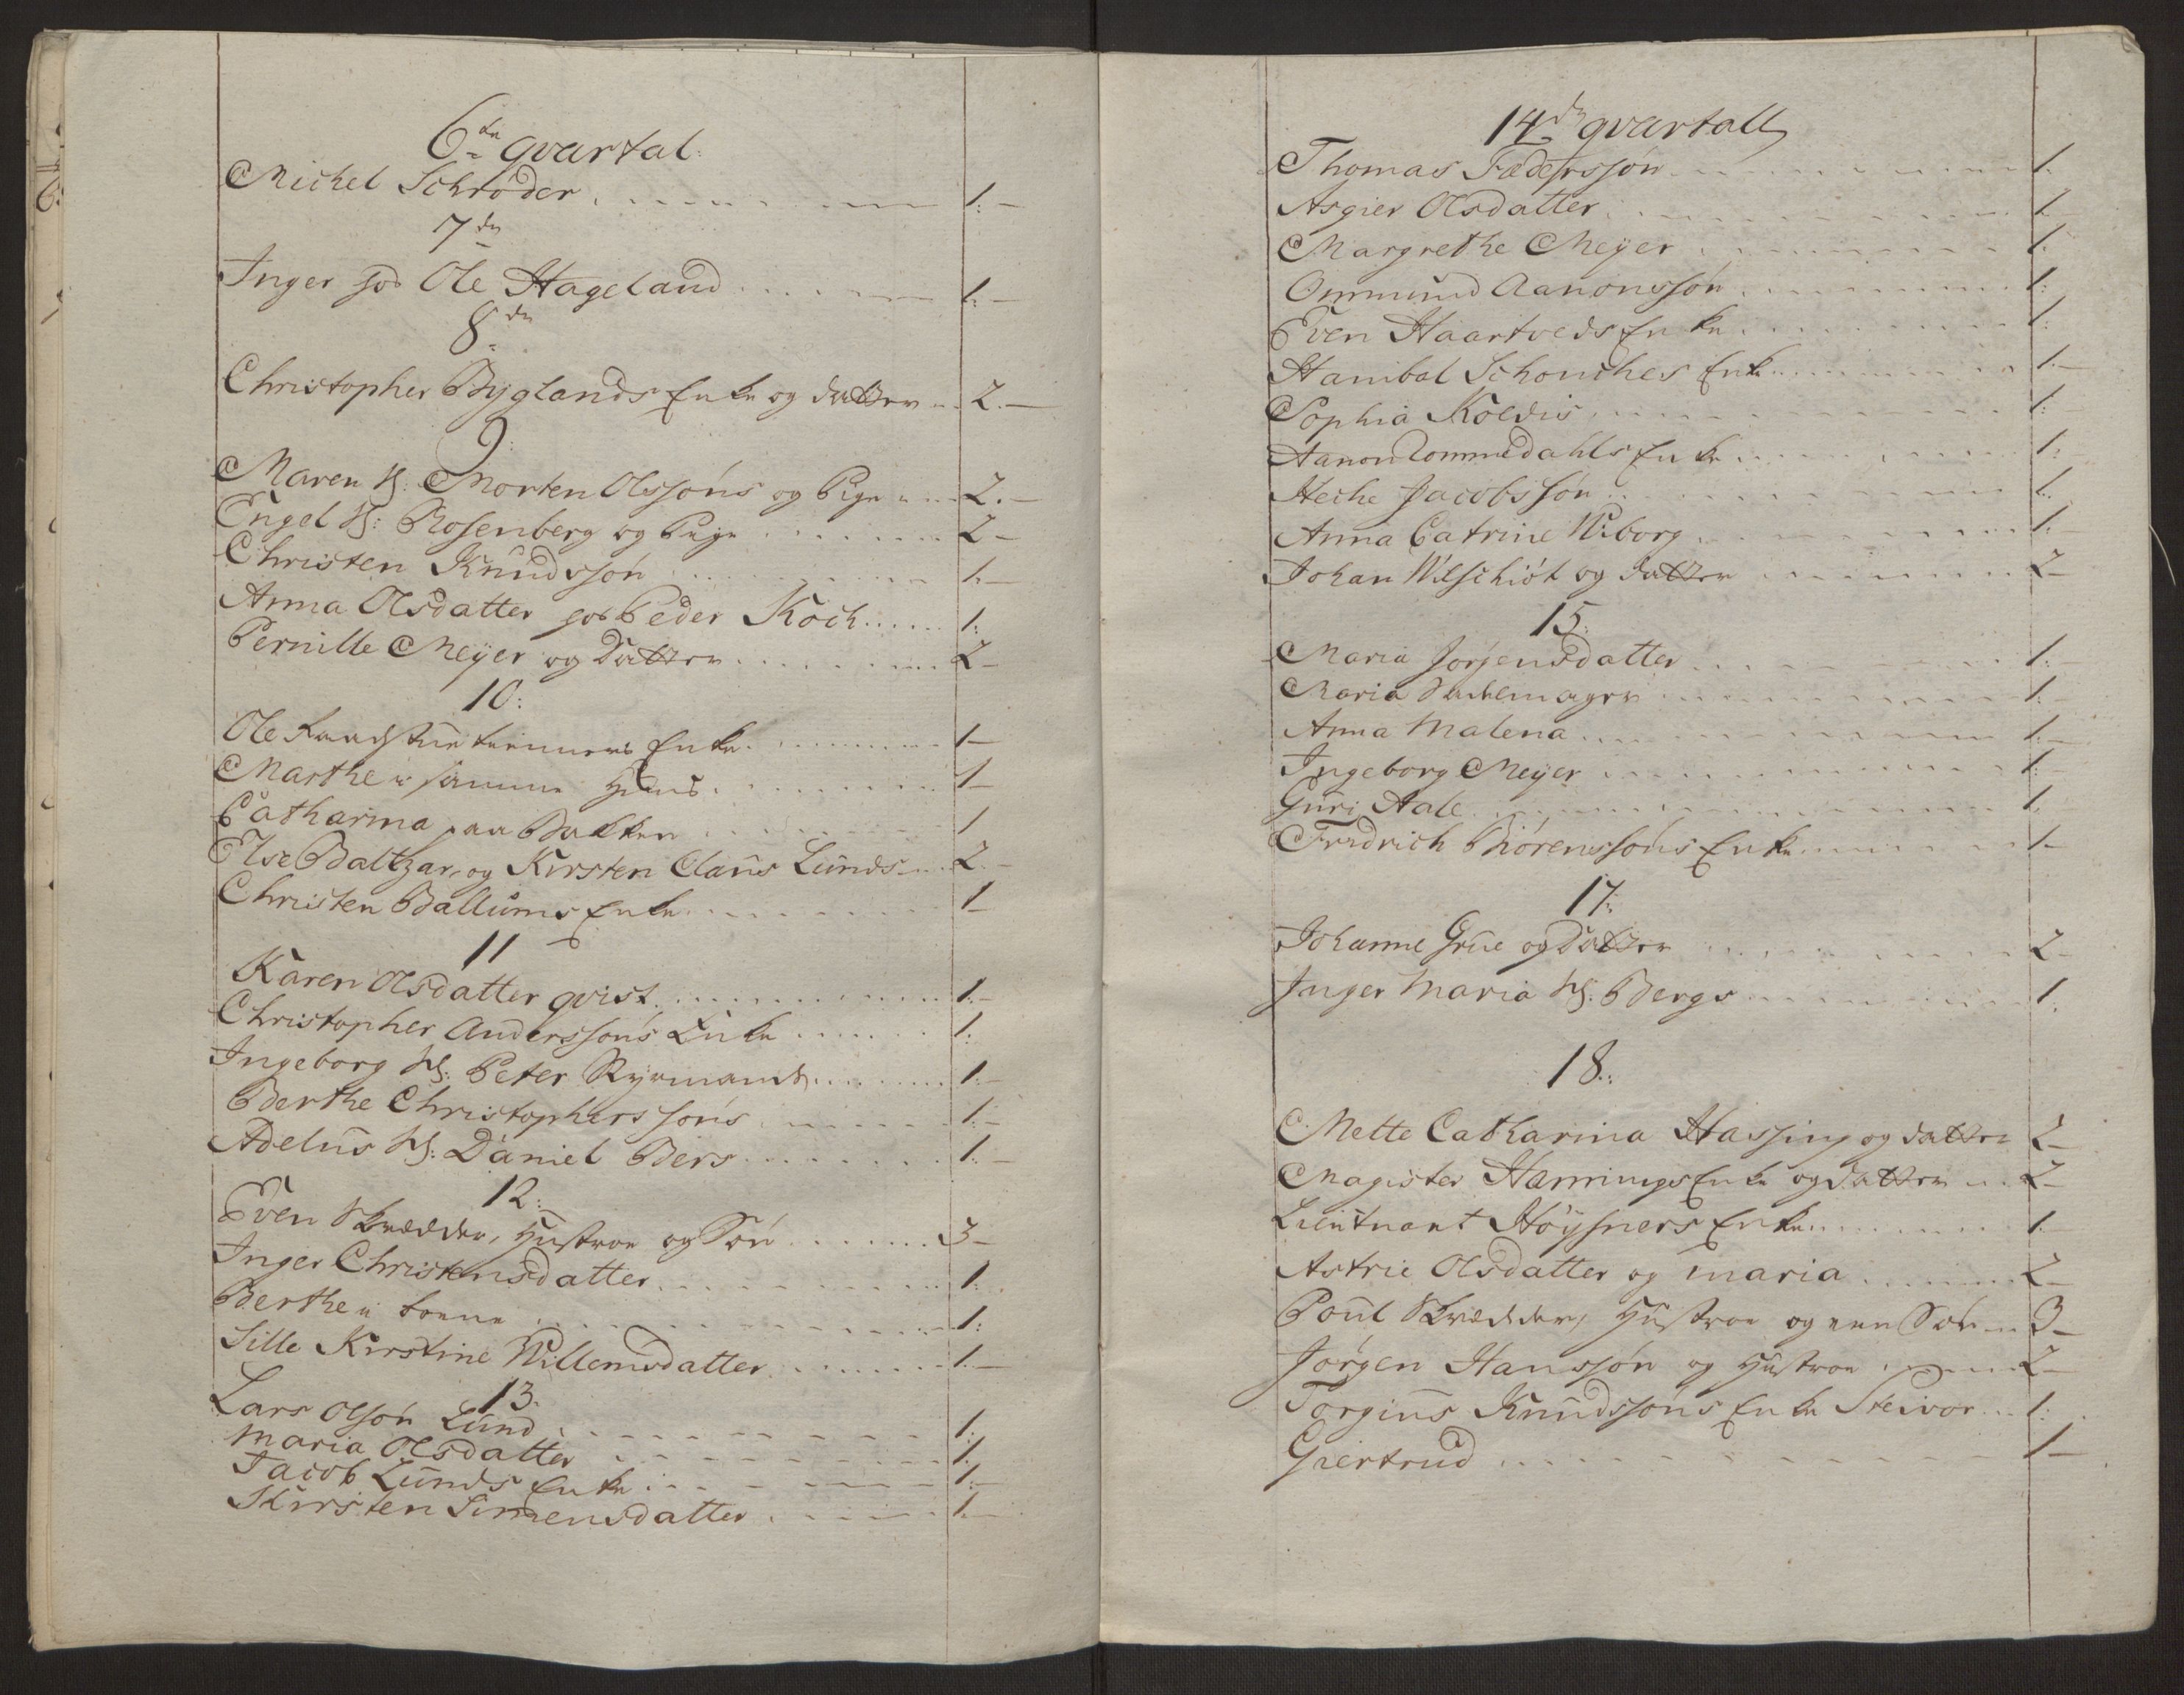 6te qvartal:
Michel Schrøder 1:
7de
Inger hos Ole Hageland 1:
8de
Christopher Byglands Enke og datter 2.
9:
Maren Sl: Morten Olssøns og Pige 2.
Engel Sl: Rosenberg og Pige 2
Christen Knudssøn 1.
Anna Olsdatter hos Peder Koch 1:
Pernille Meÿer og Datter 2
10:
Ole Raadstuetieners Enke 1
Marthe i samme Huus 1
Catharina paa Bakken 1
Else Baltzar, og Kirsten Claus Lunds 2
Christen Ballums Enke 1
11
Karen Olsdatter qvist 1:
Christopher Anderssøns Enke 1:
Ingeborg Sl: Peter Ryemands 1:
Berthe Christopherssøns 1:
Adelus Sl: Daniel Bers 1:
12:
Even Skrædder, Hustroe og Søn 3
Inger Christensdatter 1:
Berthe i 1:
Sille Kirstine Willemsdatter 1:
13.
Lars Olsøn Lund 1:
Maria Olsdatter 1:
Jacob Lunds Enke 1:
Kirsten Simensdatter 1.
14de qvartall
Thomas Federssøn 1.
Asgier Olsdatter 1
Margrethe Meÿer 1:
Ommund Aanonssøn 1:
Even Haartveds Enke 1:
Hanibal Schouches Enke 1:
Sophia Koldis 1:
Aanon Tommedahls Enke 1:
Heche Jacobssøn 1:
Anna Catrine Wiborg 1:
Johan Wilschiøt og datter 2
15:
Maria Jørgensdatter 1:
Maria 1:
Anna Malena 1:
Ingeborg Meÿer 1:
Guri Aale 1:
Fredrich Biørenssøns Enke 1
17:
Johanne Grue og Datter 2
Inger Maria Sl: Bergs 1:
18:
Mette Catharina Hassing og datter 2
Magister Hannings Enke og datter 2
Lieutnant Høÿsners Enke 1:
Astrie Olsdatter og Maria 2
Poul Skrædder, Hustroe og een Søn 3
Jørgen Hanssøn og Hustroe 2
Torgius Knudssøns Enke Steivor 1:
Giertrud 1